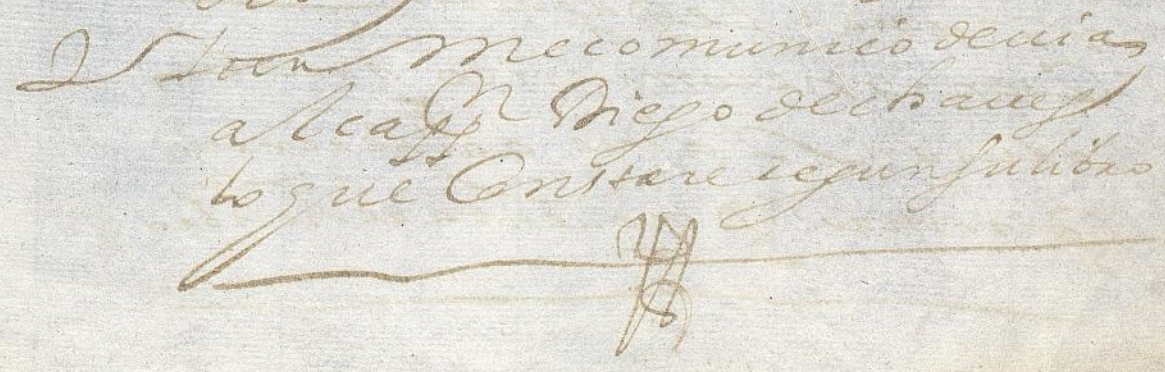 Yten me comunico devia
al Capp.n Diego de chaves
lo que Constare segun su libro